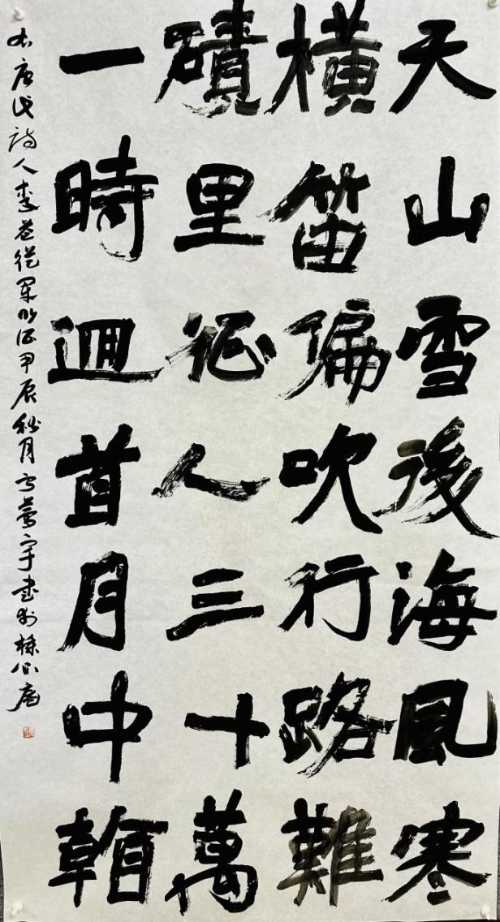 天山雪後海風寒
橫笛偏吹行路難
磧里征人三十萬
一時迴首月中看
右唐代詩人李益從軍北征甲辰秋月宇書於